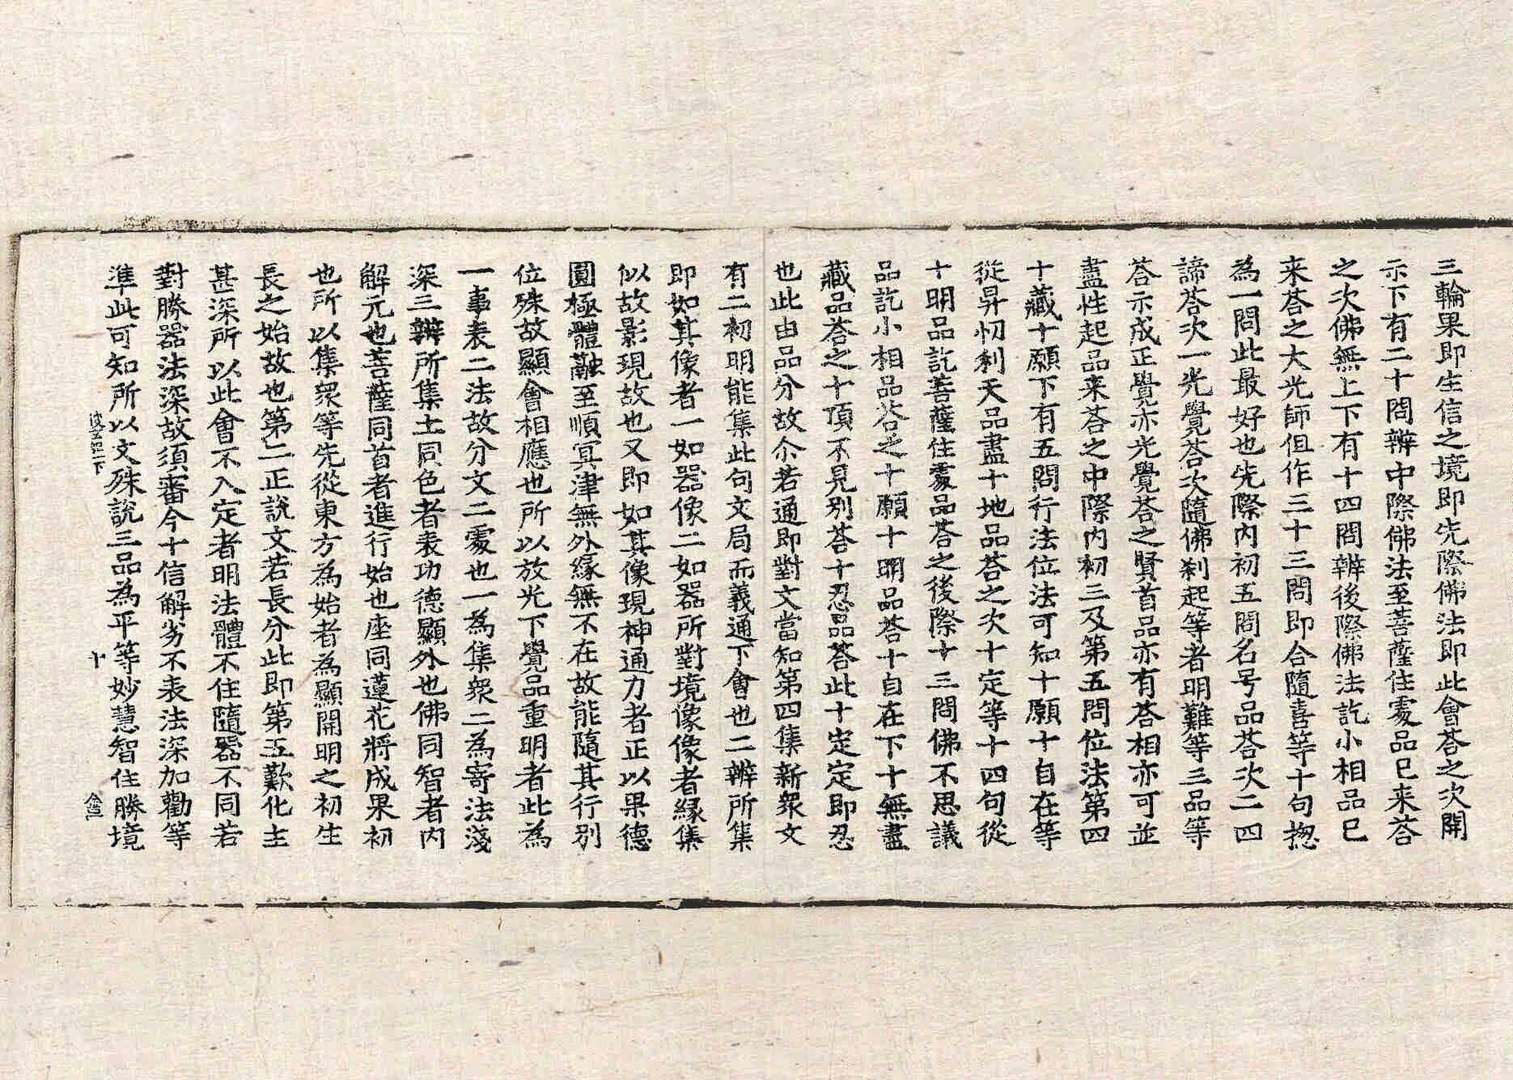 三輪果即生信之境即先際佛法即此會荅之次開
示下有二十問辨中際佛法至菩薩住處品已来荅
之次佛無上下有十四問辨後際佛法訖小相品已
来荅之大光師但作三十三問即合隨喜等十句揔
為一問此最好也先際內初五問名号品荅次二四
諦荅次一光覺荅次隨佛刹起等者明難等三品等
荅示成正覺亦光覺荅之賢首品亦有荅相亦可並
盡性起品来荅之中際內初三及第五問位法第四
十藏十願下有五問行法位法可知十願十自在等
從昇忉利天品盡十地品荅之次十定等十四句從
十明品訖菩薩住處品荅之後際十三問佛不思議
品訖小相品荅之十願十明品荅十自在下十無盡
藏品荅之十頂不見別荅十忍品荅此十定定即忍
也此由品分故尒若通即對文當知第四集新衆文
有二初明能集此句文局而義通下會也二辨所集
即如其像者一如器像二如器所對境像像者緣集
似故影現故也又即如其像現神通力者正以果德
圓極體融至順冥津無外緣無不在故能隨其行別
位殊故顯會相應也所以放光下覺品重明者此為
一事表二法故分文二處也一為集衆二為寄法淺
深三辨所集土同色者表功德顯外也佛同智者內
解元也菩薩同首者進行始也座同蓮花將成果初
也所以集衆等先從東方為始者為顯開明之初生
長之始故也第二正說文若長分此即第五歎化主
甚深所以此會不入定者明法體不住隨器不同若
對勝器法深故須審今十信解劣不表法深加勸等
準此可知所以文殊說三品為平等妙慧智住勝境
十